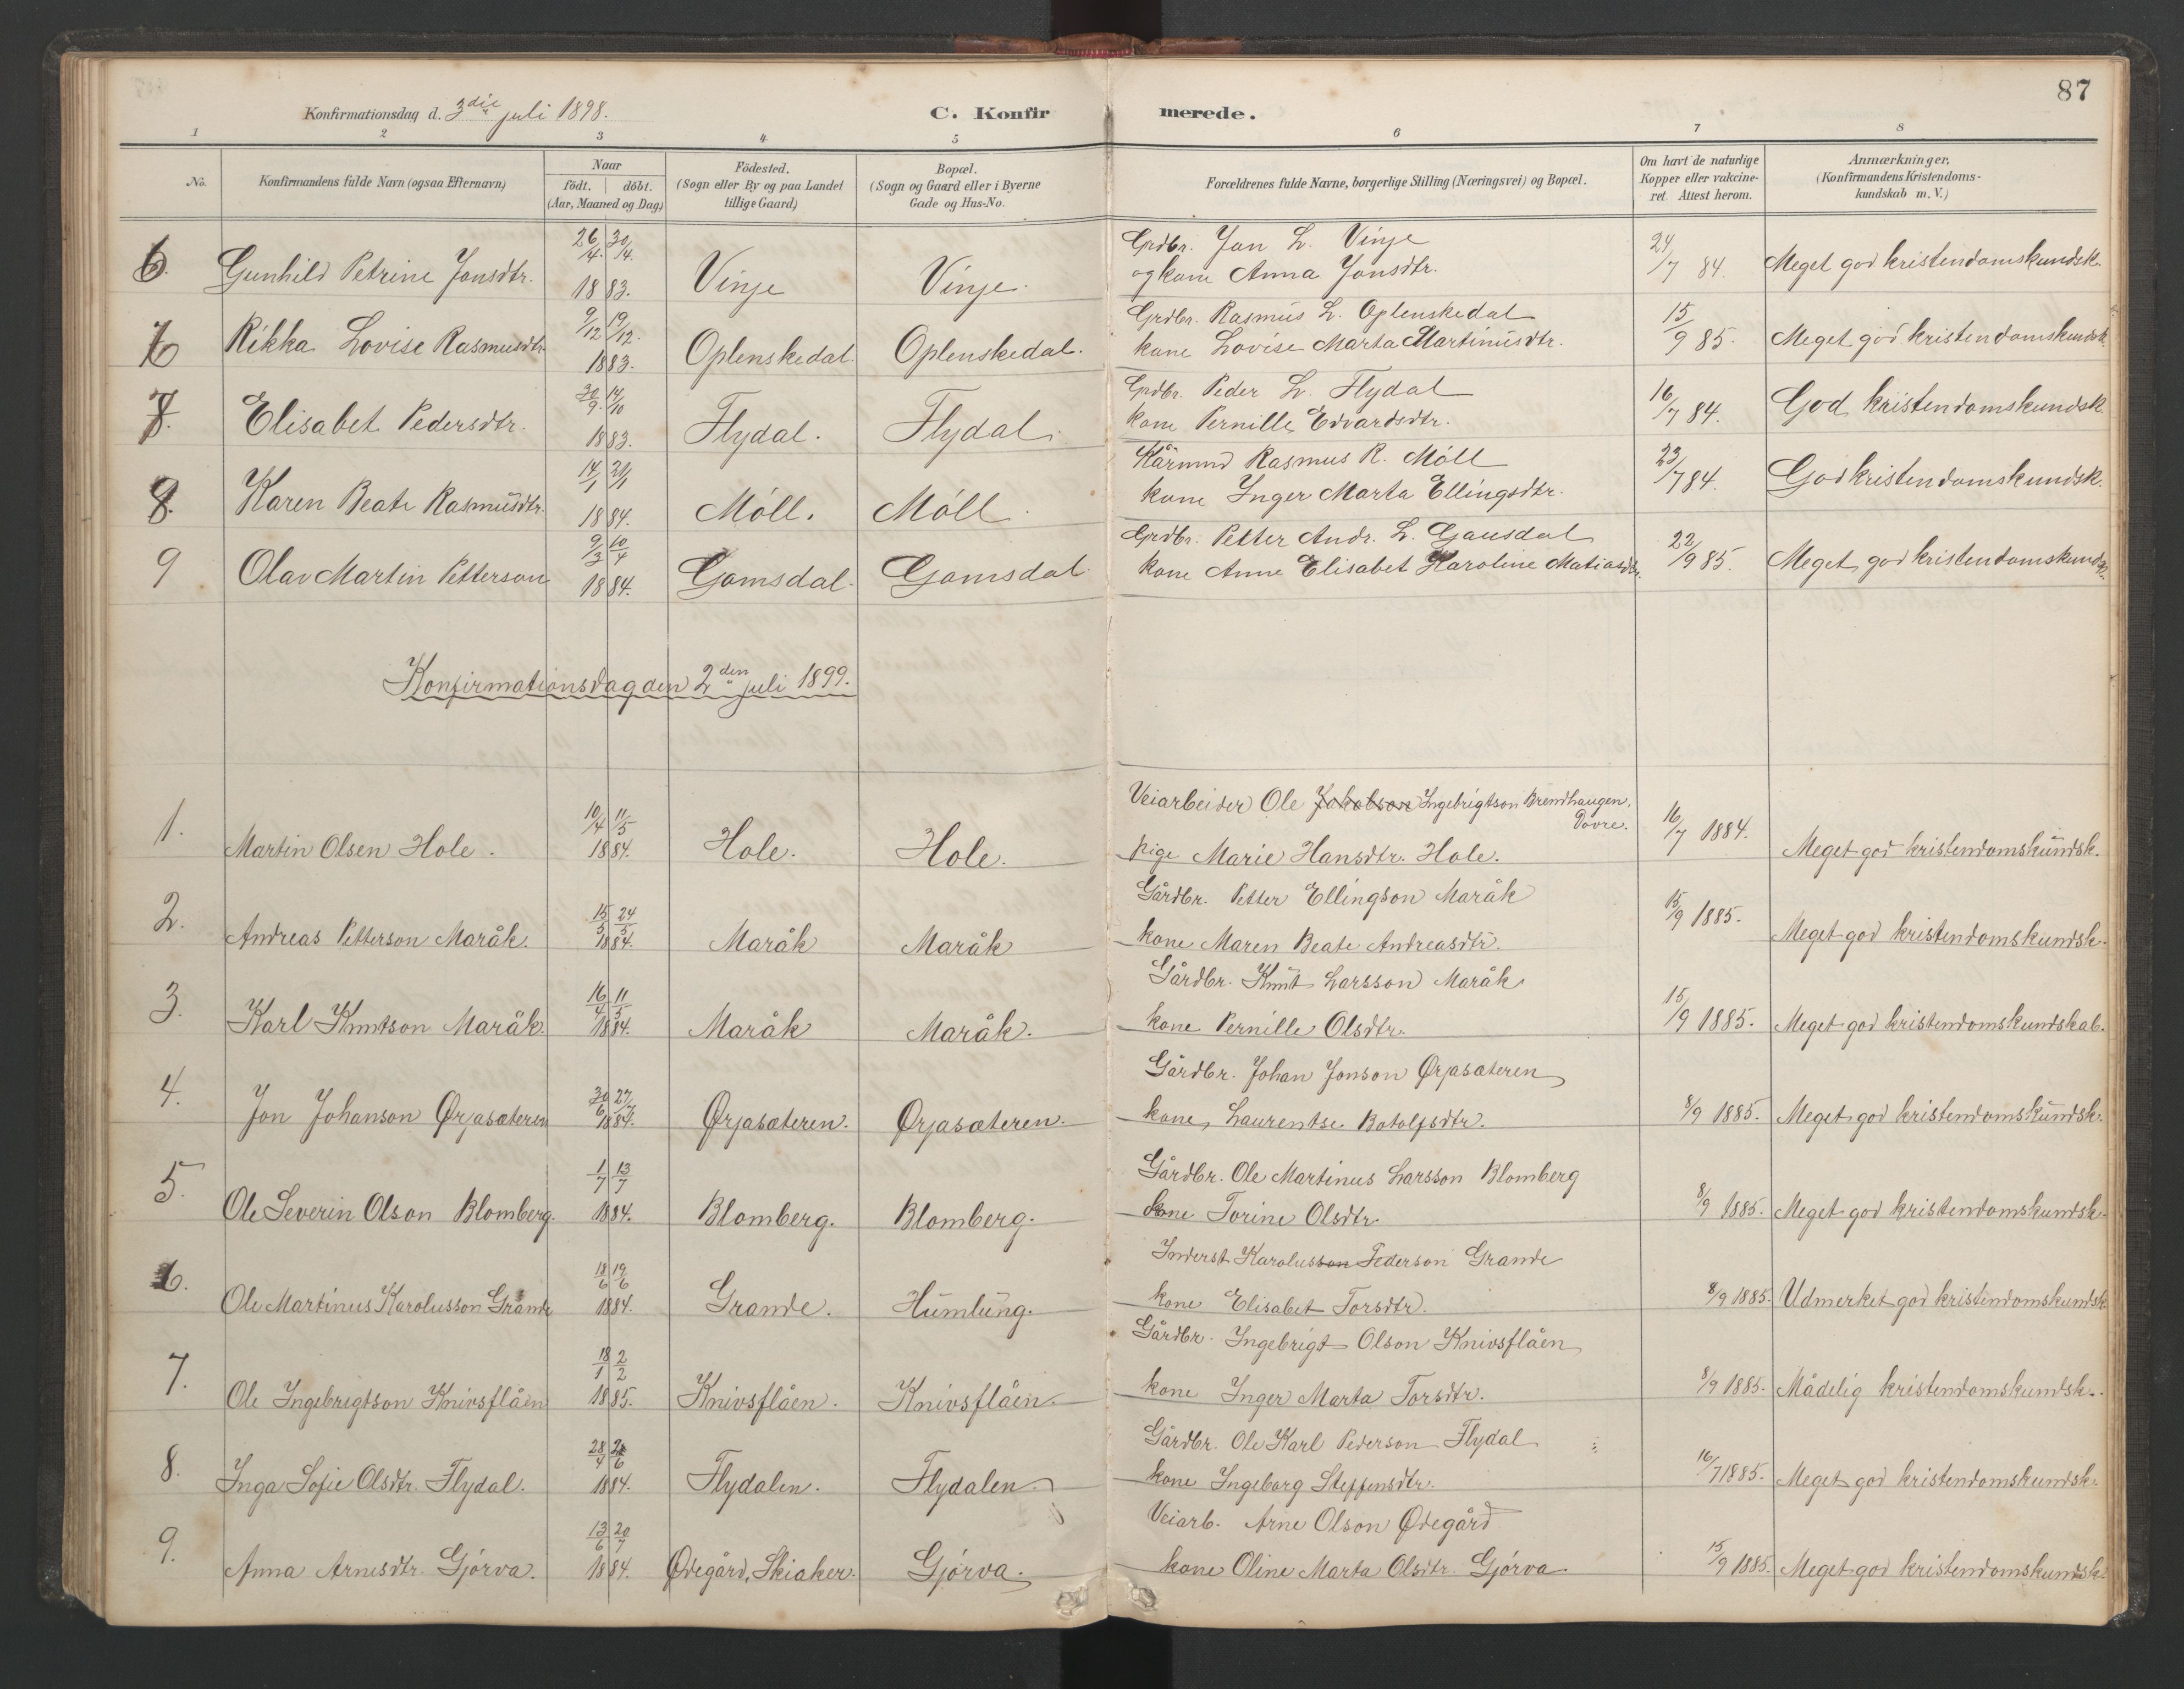 87
Konfirmationsdag d. 3die juli 1898.
C. Konfirmerede.
1 2 3 4 5 6 7 8
No.
Konfirmandens fulde Navn (ogsaa Efternavn)
Naar
födt. döbt.
(Aar, Maaned og Dag)
Födested.
(Sogn eller By og paa Landet
tillige Gaard)
Bopæl.
(Sogn og Gaard eller i Byerne
Gade og Hus-No.
Forældrenes fulde Navne, borgerlige Stilling (Næringsvei) og Bopæl.
Om havt de naturlige
Kopper eller vakcine-
ret. Attest herom.
Anmærkninger,
(Konfirmandens Kristendoms-
kundskab m. V.)
Grdbr. Jon L. Vinje
26/4 30/4 24/7 84.
Gunhild Petrine Jonsdtr. 1883. Vinje Vinje. og kone Anna Jonsdtr. Meget god kristendomskundsk.
9/12 19/12. Grdbr. Rasmus L. Oplenskedal 15/9 85.
Rikka Lovise Rasmusdtr. 1883. Oplenskedal. Oplenskedal. kone Lovise Marta Martinusdtr. Meget god kristendomskundsk.
30/9. 14/10 Grdbr. Peder L. Flydal 16/7 84.
Elisabet Pedersdtr. 1883. Flydal. Flydal. kone Pernille Edvardsdtr. God kristendomskundsk.
14/1 21/1 Kårmnd Rasmus R. Möll 23/7 84.
8. Karen Beate Rasmusdtr. 1884. Möll. Möll. kone Inger Marta Ellingsdtr. God kristendomskundsk.
9/3 10/4 Grdbr. Petter Andr. L. Gausdal 22/9 85.
9 Olav Martin Petterson 1884. Gamsdal. Gamsdal kone Anne Elisabet Karoline Matiasdtr. Meget god kristendomskundsk.
Konfirmationsdag den 2den juli 1899.
10/4 11/5 Veiarbeider Ole Jakobson Ingebrigtson Brendhaugen,
Dovre. 16/7 1884.
1. Martin Olsen Hole. 1884. Hole. Hole. pige Marie Hansdtr. Hole. Meget god kristendomskundsk.
15/5 24/5 Gårdbr. Petter Ellingson Maråk 15/9 1885.
2. Andreas Petterson Maråk. 1884. Maråk Maråk kone Maren Beate Andreasdtr. Meget god kristendomskundsk.
16/4 11/5 Gårdbr. Knut Larsson Maråk
3. Karl Knutson Maråk. 1884. Maråk Maråk. kone Pernille Olsdtr. 15/9 1885. Meget god kristendomskundskab.
30/6 27/7 Gårdbr. Johan Jonson Ørjasæteren
4. Jon Johanson Ørjasæteren 1884. Ørjasæteren. Ørjasæteren. kone, Laurentse Botolfsdtr. 8/9 1885. Meget god kristendomskundsk.
1/7 13/7 Gårdbr. Ole Martinus Larsson Blomberg
5. Ole Severin Olson Blomberg. 1884. Blomberg. Blomberg. kone Torine Olsdtr. 8/9 1885. Meget god kristendomskundsk.
18/6 19/6 Inderst Karolusson Pederson Grande
6. Ole Martinus Karolusson Grande 1884. Grande. Humlung. kone Elisabet Torsdtr. 8/9 1885. Udmerket god kristendomskundsk
18/1 2/2 Gårdbr. Ingebrigt Olson Knivsflåen
7. Ole Ingebrigtson Knivsflåen 1885. Knivsflåen. Knivsflåen. kone Inger Marta Torsdtr. 8/9 1885. Mådelig kristendomskundsk.
28/4 Gårdbr. Ole Karl Pederson Flydal
8. Inga Sofie Olsdtr. Flydal. 1884. Flydalen. Flydalen. kone Ingeborg Steffensdtr. 16/7 1885. Meget god kristendomskundsk.
13/6 20/7 Veiarb. Arne Olson Ødegård
9. Anna Arnesdtr. Gjörva. 1884. Ødegård, Skiaker. Gjörva. kone Oline Marta Olsdtr. Gjörva 15/9 1885. Meget god kristendomskundsk.